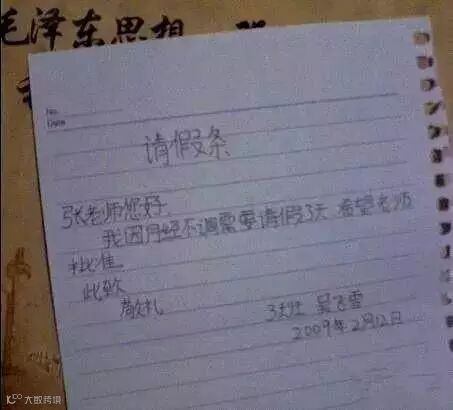 毛泽东思想
No.
Date
请假条
张老师您好.
我因月经不调需要请假3天 希望老师
批准
此致
敬礼
吴飞雪
2009年2月12日
大数跨境